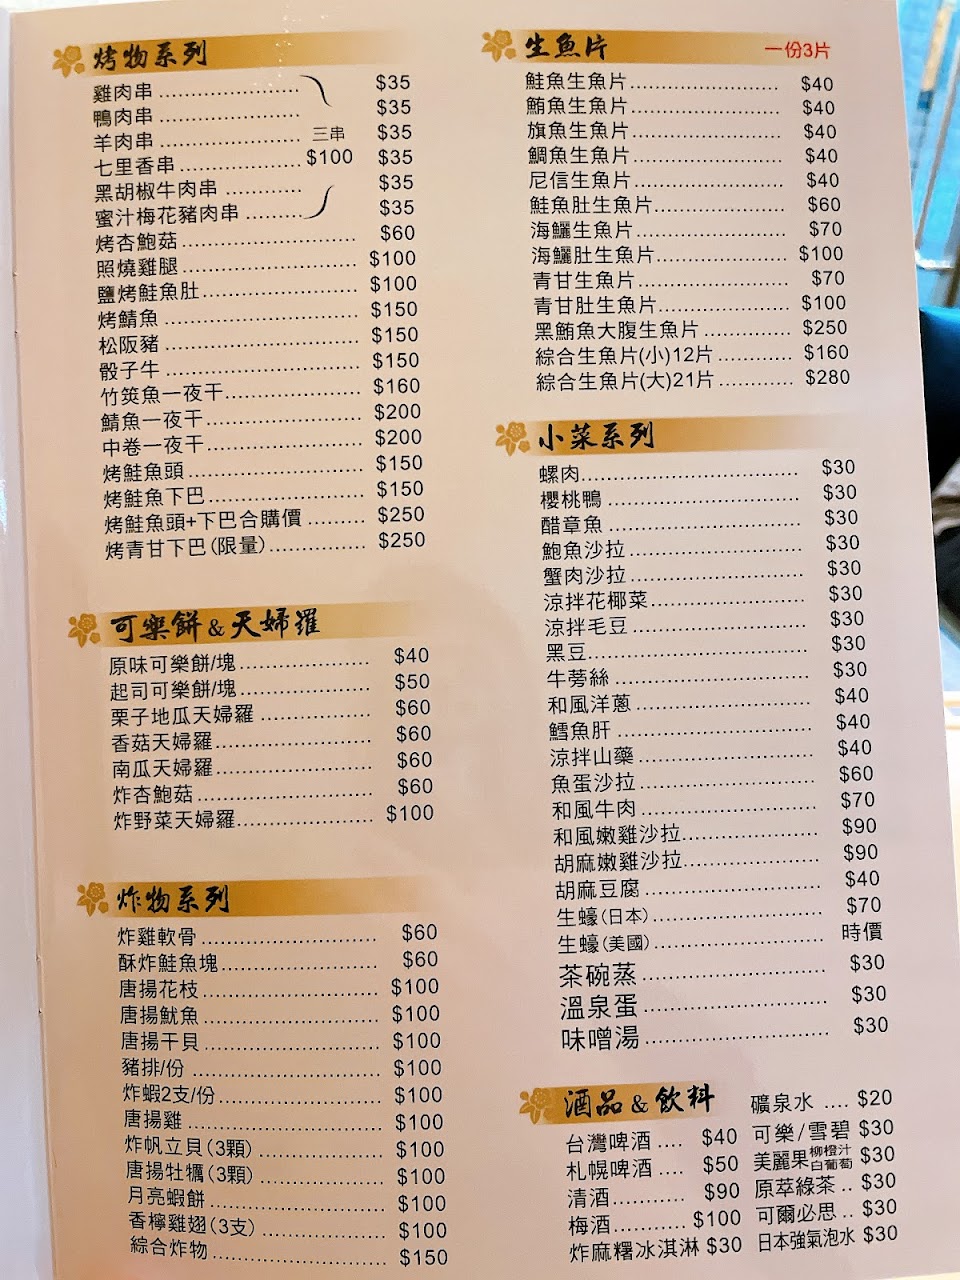 烤物系列
雞肉串 $35
鴨肉串 $35
羊肉串 三串 $35
七里香串 $100 $35
黑胡椒牛肉串 $35
蜜汁梅花豬肉串 $35
烤杏鮑菇 $60
照燒雞腿 $100
鹽烤鮭魚肚 $100
烤鯖魚 $150
松阪豬 $150
骰子牛 $150
竹筴魚一夜干 $160
鯖魚一夜干 $200
中卷一夜干 $200
烤鮭魚頭 $150
烤鮭魚下巴 $150
烤鮭魚頭+下巴合購價 $250
烤青甘下巴(限量) $250
可樂餅&天婦羅
原味可樂餅/塊 $40
起司可樂餅/塊 $50
栗子地瓜天婦羅 $60
香菇天婦羅 $60
南瓜天婦羅 $60
炸杏鮑菇 $60
炸野菜天婦羅 $100
炸物系列
炸雞軟骨 $60
酥炸鮭魚塊 $60
唐揚花枝 $100
唐揚魷魚 $100
唐揚干貝 $100
豬排/份 $100
炸蝦2支/份 $100
唐揚雞 $100
炸帆立貝(3顆) $100
唐揚牡犡(3顆) $100
月亮蝦餅 $100
香檸雞翅(3支) $100
綜合炸物 $150
生魚片 一份3片
鮭魚生魚片 $40
鮪魚生魚片 $40
旗魚生魚片 $40
鯛魚生魚片 $40
尼信生魚片 $40
鮭魚肚生魚片 $60
海鱺生魚片 $70
海鱺肚生魚片 $100
青甘生魚片 $70
青甘肚生魚片 $100
黑鮪魚大腹生魚片 $250
綜合生魚片(小)12片 $160
綜合生魚片(大)21片 $280
小菜系列
螺肉 $30
櫻桃鴨 $30
醋章魚 $30
鮑魚沙拉 $30
蟹肉沙拉 $30
涼拌花椰菜 $30
涼拌毛豆 $30
黑豆 $30
牛蒡絲 $30
和風洋蔥 $40
鱈魚肝 $40
涼拌山藥 $40
魚蛋沙拉 $60
和風牛肉 $70
和風嫩雞沙拉 $90
胡麻嫩雞沙拉 $90
胡麻豆腐 $40
生蠔(日本) $70
生蠔(美國) 時價
茶碗蒸 $30
溫泉蛋 $30
味噌湯 $30
酒品&飲料
台灣啤酒 $40
札幌啤酒 $50
清酒 $90
梅酒 $100
炸麻糬冰淇淋 $30
礦泉水 $20
可樂/雪碧 $30
美麗果柳橙汁白葡萄 $30
原萃綠茶 $30
可爾必思 $30
日本強氣泡水 $30